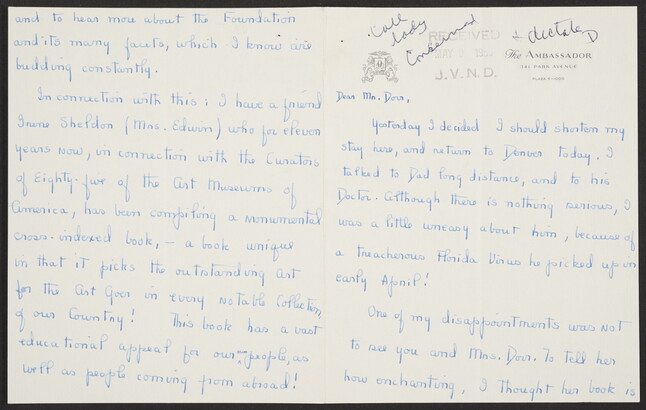 Call
lady
Concerned
& dictate
D
RECEIVED
MAY
J.V.N.D.
The AMBASSADOR
PARK AVENUE
Dear Mr. Dorr,
Yesterday I decided I should shorten my
stay here, and return to Denver today. I
talked to Dad long distance, and to his
Doctor. Although there is nothing serious, I
was a little uneasy about him, because of
a treacherous Florida Virus he picked up in
early April!
One of my disappointments was not
to see you and Mrs. Dorr. To tell her
how enchanting, I thought her book is
and to hear more about the Foundation
and its many facets, which I know are
budding constantly.
In connection with this: I have a friend
Irene Sheldon (Mrs. Edwin) who for eleven
years now, in connection with the Curators
of Eighty-five of the Art Museums of
America, has been compiling a monumental
cross-indexed book, — a book unique
in that it picks the outstanding art
for the Art Goer in every notable Collection,
of our Country! This book has a vast
educational appeal for our people, as
well as people coming from abroad!